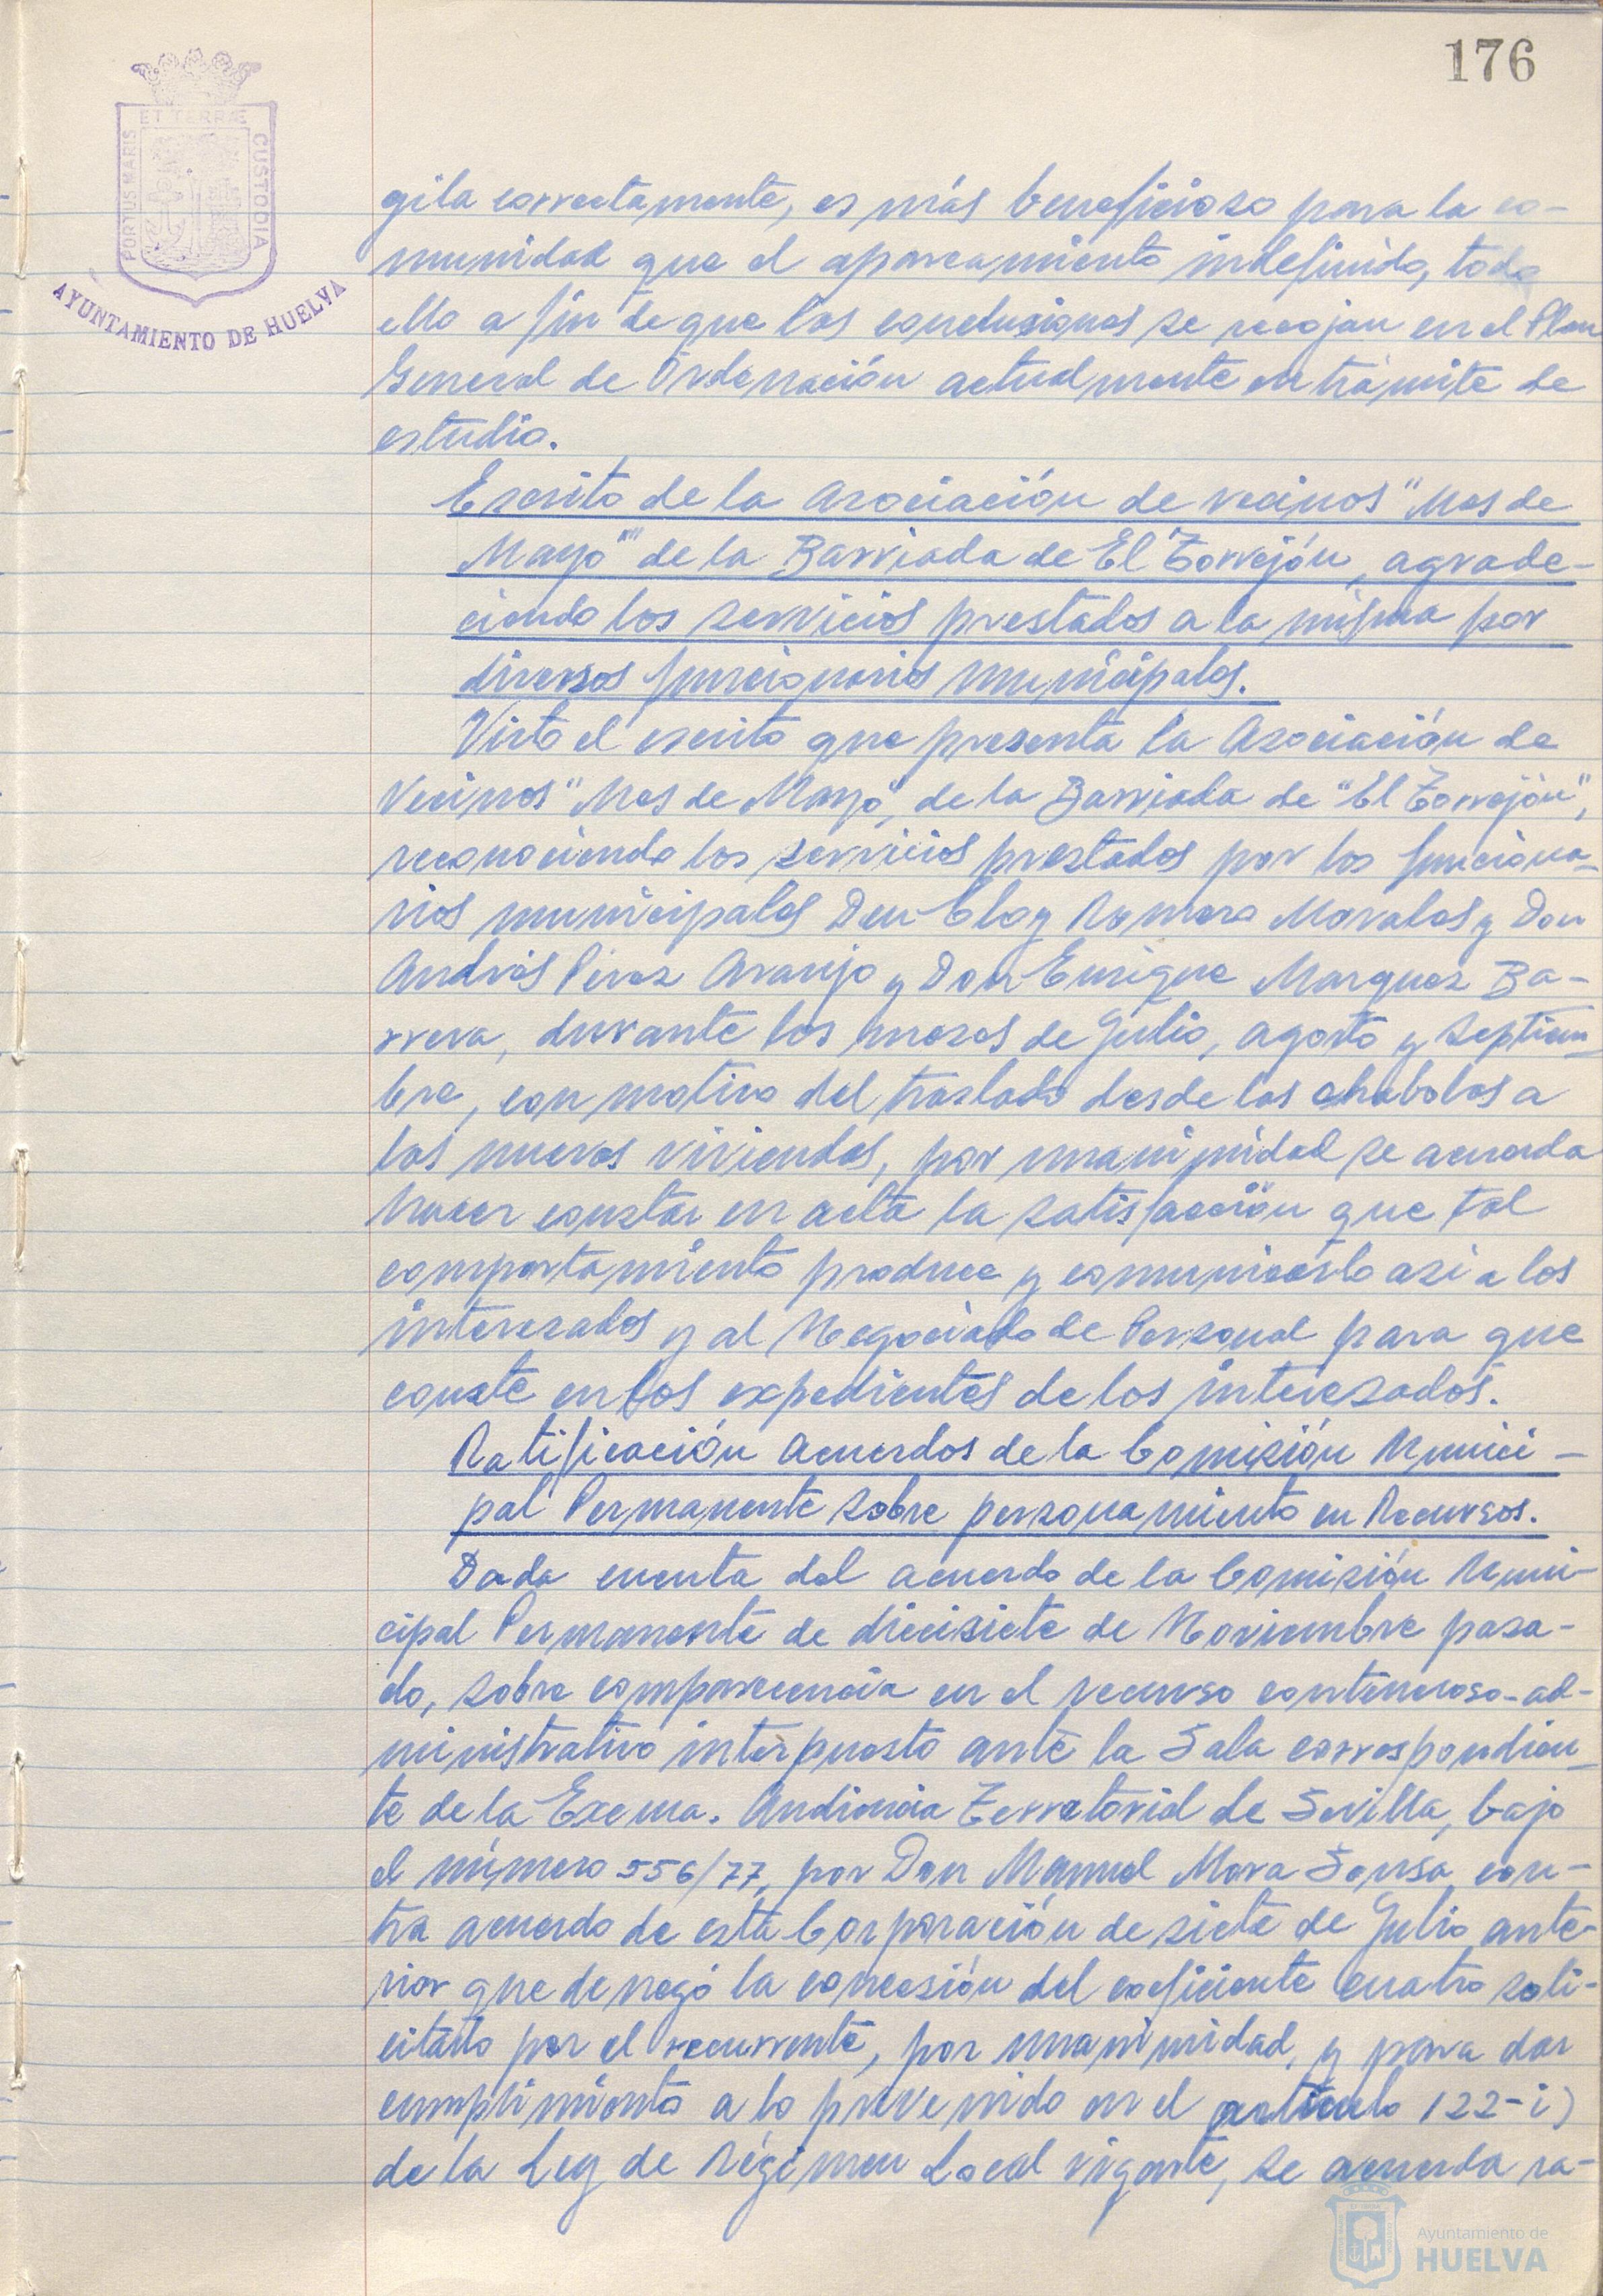 176
ET TERRÆ
PORTUS MARIS
CUSTODIA
AYUNTAMIENTO DE HUELVA
gila correctamente, es más beneficioso para la co-
munidad que el aparcamiento indefinido, todo
ello a fin de que las conclusiones se recojan en el Plan
General de Ordenación actualmente en trámite de
estudio.
Escrito de la Asociación de vecinos "Mes de
Mayo" de la Barriada de El Torrejón, agrade-
ciendo los servicios prestados a la misma por
diversos funcionarios municipales.
Visto el escrito que presenta la Asociación de
Vecinos "Mes de Mayo", de la Barriada de "El Torrejón",
reconociendo los servicios prestados por los funciona-
rios municipales Don Eloy Romero Morales y Don
Andrés Pérez Araujo y Don Enrique Marquez Ba-
rrera, durante los meses de Julio, agosto y Septiem-
bre, con motivo del traslado desde las chabolas a
las nuevas viviendas, por unanimidad se acuerda
hacer constar en acta la satisfacción que tal
comportamiento produce y comunicarlo asi a los
interesados y al Negociado de Personal para que
conste en los expedientes de los interesados.
Ratificación acuerdos de la Comisión Munici-
pal Permanente sobre personamiento en Recursos.
Dada cuenta del acuerdo de la Comisión Muni-
cipal Permanente de diecisiete de Noviembre pasa-
do, sobre comparecencia en el recurso contencioso-ad-
ministrativo interpuesto ante la Sala correspondien-
te de la Excma. Audiencia Territorial de Sevilla, bajo
el número 556/77, por Don Manuel Mora Sousa, con-
tra acuerdo de esta Corporación de siete de Julio ante-
rior que denegó la concesión del coeficiente cuatro soli-
citado por el recurrente, por unanimidad, y para dar
cumplimiento a lo prevenido en el artículo 122-i)
de la Ley de Régimen Local vigente, se acuerda ra-
Ayuntamiento de
HUELVA